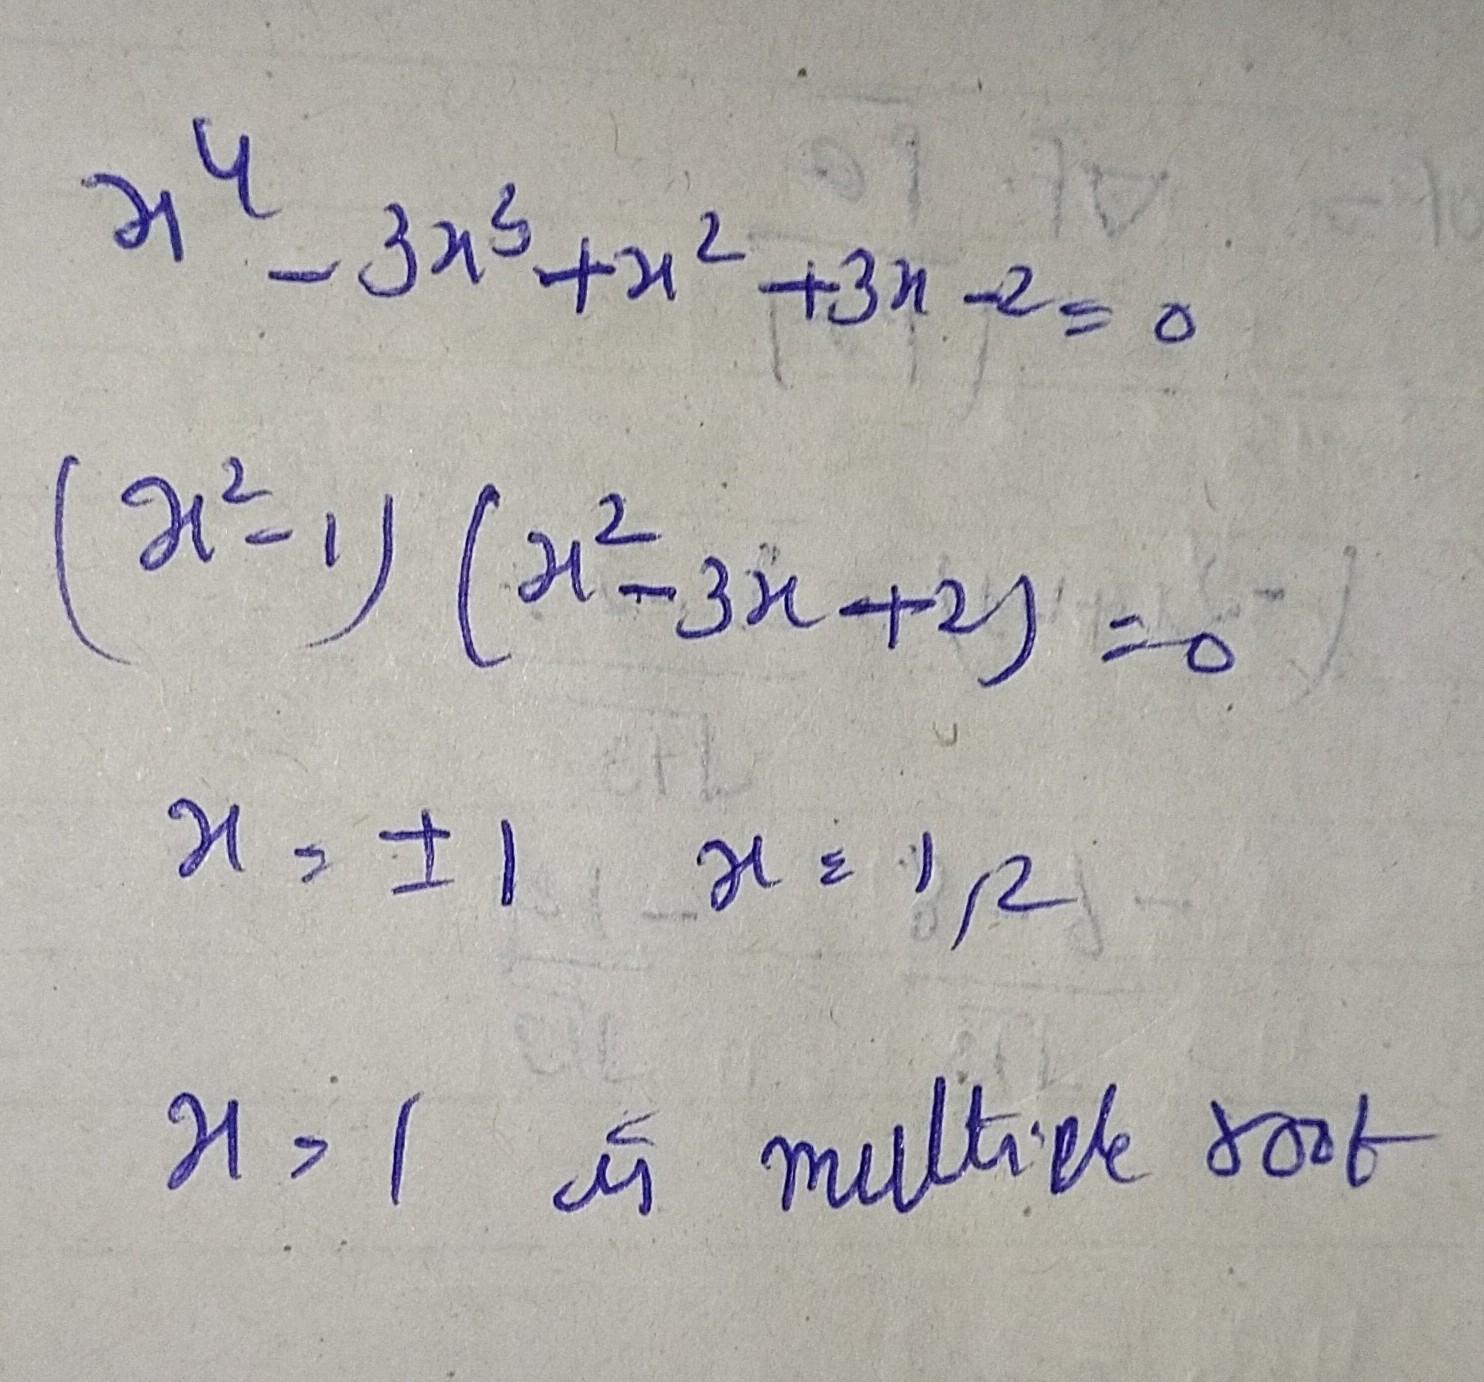 x⁴ - 3x³ + x² + 3x - 2 = 0
(x² - 1) (x² - 3x + 2) = 0
x = ±1 x = 1, 2
x = 1 is multiple root